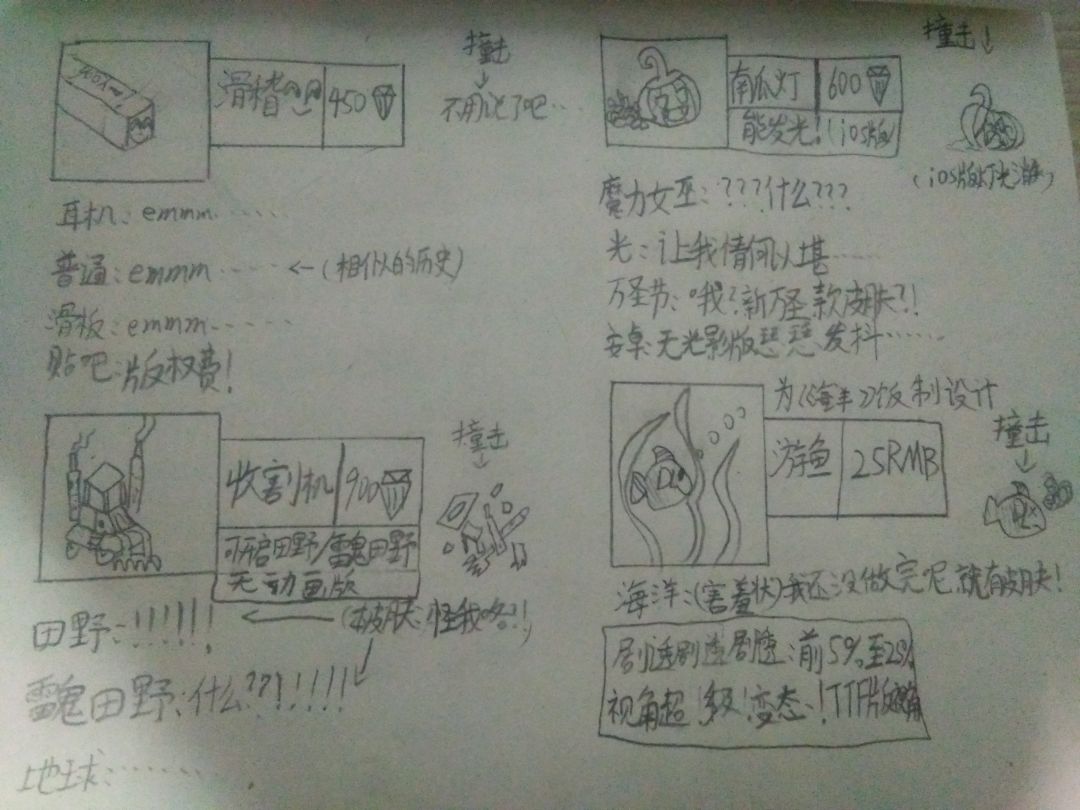 滑稽
450
撞击
不用说了吧…
耳机：emmm……
普通：emmm……
←(相似的历史)
滑板：emmm……
贴吧：版权费！
南瓜灯
600
能发光！(ios版)
撞击↓
魔力女巫：？？？什么？？？
光：让我情何以堪……
万圣节：哦？新万圣款皮肤？！
安卓无光影版瑟瑟发抖……
收割机
900
可开启田野/魏田野
无动画版
撞击
(本皮肤：怪我咯?!)
田野：！！！！！！
魏田野：什么？？！！！！！
地球：……
为《海洋》饭制设计
游鱼
25RMB
撞击
海洋：(害羞状)我还没做完呢就有皮肤！
剧透剧透剧透：前5%至25%
视角超！级！变态！TTF版